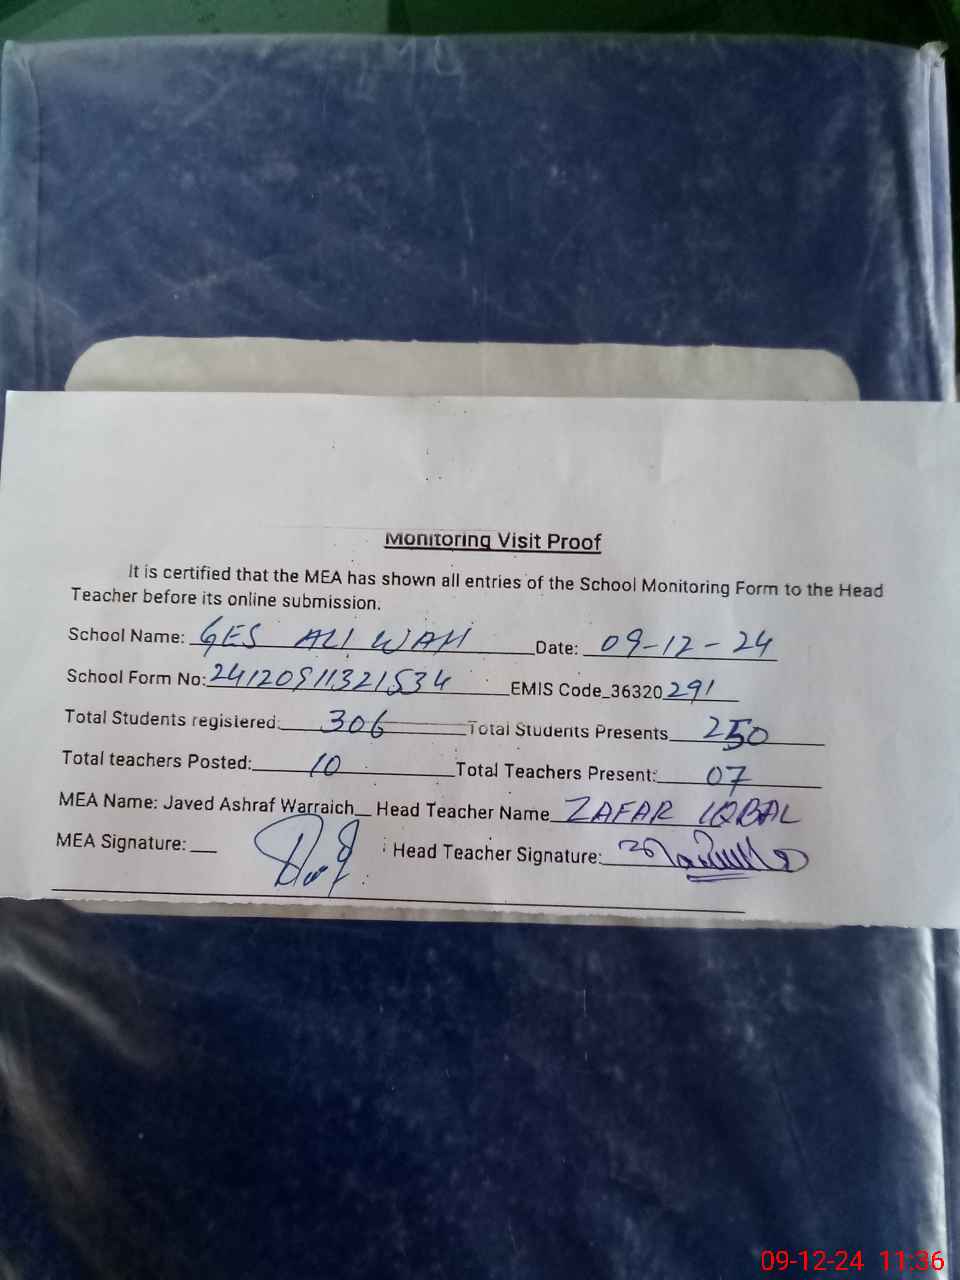 Monitoring Visit Proof
It is certified that the MEA has shown all entries of the School Monitoring Form to the Head
Teacher before its online submission.
School Name: GES ALI WAH Date: 09-12-24
School Form No: 24120911321534 EMIS Code_36320 291
Total Students registered: 306 Total Students Presents 250
Total teachers Posted: 10 Total Teachers Present: 07
MEA Name: Javed Ashraf Warraich__ Head Teacher Name ZAFAR IQBAL
MEA Signature: __ Head Teacher Signature:
09-12-24 11:36